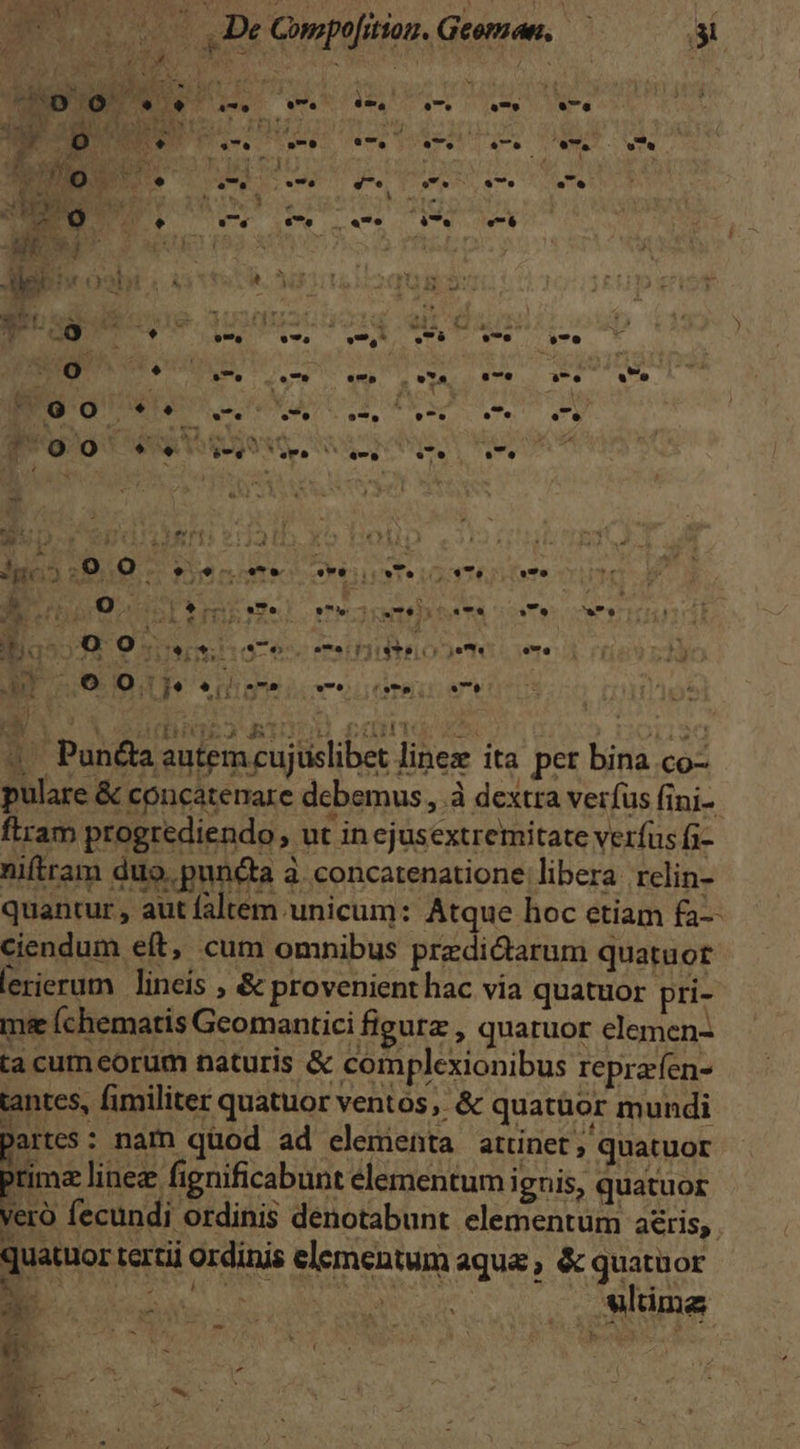 De Compoſition. Geoman. 31
Puncta autem cujuslibet lineæ ita per bina co-
pulare & concatenare debemus, à dextra verſus ſini-
ſtram progrediendo, ut in ejus extremitate verſus ſi-
niſtram duo puncta à concatenatione libera relin-
quantur, aut ſaltem unicum: Atque hoc etiam fa-
ciendum eſt, cum omnibus prædictarum quatuor
ſerierum lineis, & provenient hac via quatuor pri-
mæ ſchematis Geomantici figuræ, quatuor elemen-
ta cum eorum naturis & complexionibus repræſen-
tantes, ſimiliter quatuor ventos, & quatuor mundi
partes: nam quod ad elementa attinet, quatuor
primæ lineæ ſignificabunt elementum ignis, quatuor
verò ſecundi ordinis denotabunt elementum aëris,
quatuor tertii ordinis elementum aquæ, & quatuor
ultimæ